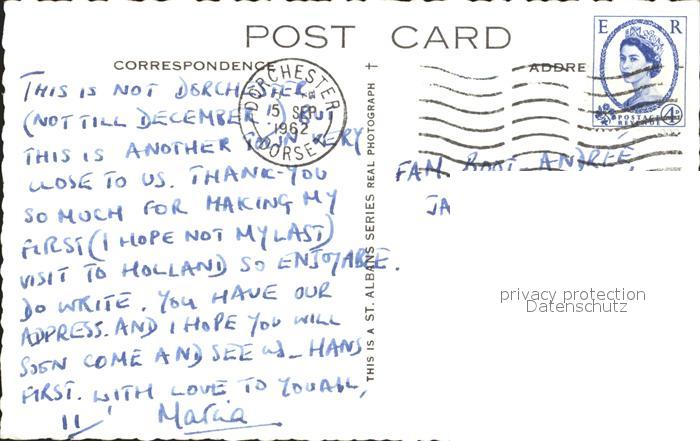 POST CARD
CORRESPONDENCE
ADDRE
E R
POSTAGE
REVENUE
4D
DORCHESTER
15 SEP
1962
DORSET
THIS IS NOT DORCHESTER
(NOT TILL DECEMBER ) BUT
THIS IS ANOTHER TOWN VERY
CLOSE TO US. THANK-YOU
SO MUCH FOR MAKING MY
FIRST (I HOPE NOT MY LAST)
VISIT TO HOLLAND SO ENJOYABLE.
DO WRITE. YOU HAVE OUR
ADDRESS. AND I HOPE YOU WILL
SOON COME AND SEE US – HANS
FIRST. WITH LOVE TO YOU ALL,
Marcia
THIS IS A ST. ALBANS SERIES REAL PHOTOGRAPH
FAM. BOOT ANDREÉ
JA
privacy protection
Datenschutz